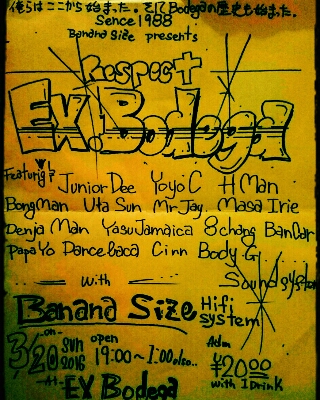 俺らはここから始まった。そしてBodegaの歴史も始まった。
Sence 1988
Banana Size presents
Respect
EX.Bodega
Featuring
Junior Dee Yoyo C H Man
Bong Man Uta Sun Mr Jay. Masa Irie
Denja Man Yasu Jamaica 8chang BanCar
Papa Yo Dancebaca Cinn Body G
Soundsystem
with
Banana Size Hifi system
-on-
3/20 SUN 2016
open
19:00~1:00 also..
Adm
¥2000
with 1 Drink
-At-
EX Bodega